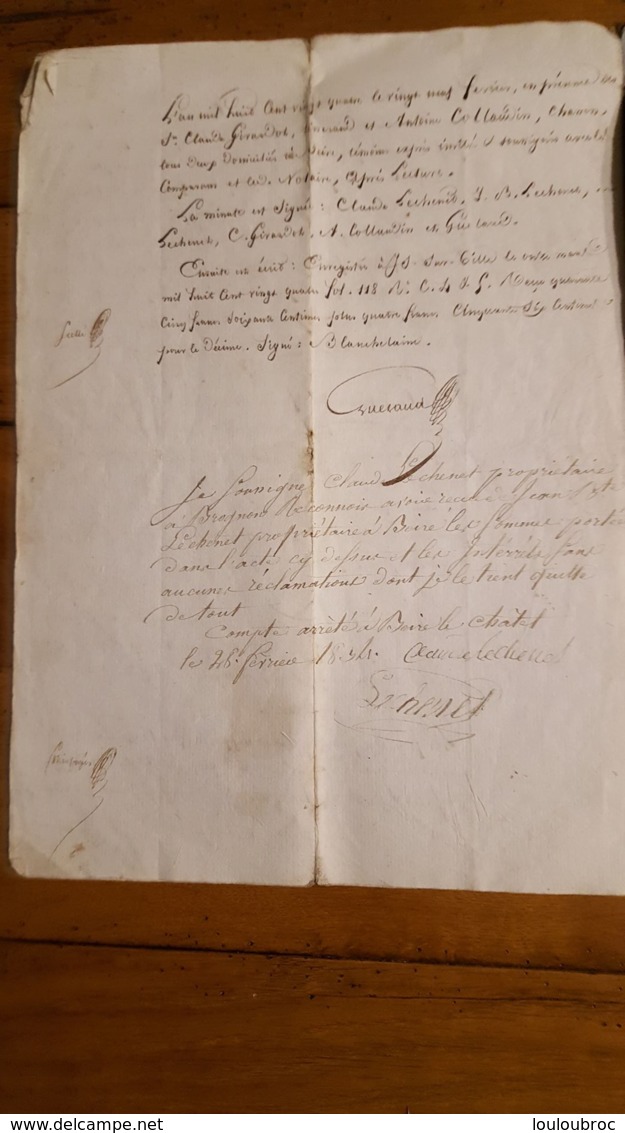 L'an mil huit Cent vingt quatre le vingt neuf fevrier, en présence des
Srs Claude Girardot, et Antoine Collaudin, Charron,
tous deux domiciliés à Beire, témoins exprès invités & soussignés avec les
Comparans et led. Notaire, après Lecture.
La minute est Signée : Claude Lechenet, J. B. Lechenet,
Lechenet, C. Girardot, A. Collaudin et Gueraud.
Ensuite est écrit : Enregistré à Is-Sur-Tille le onze mars
mil huit Cent vingt quatre fol. 118 Ro. C. 4 & 5. Reçu quarante
Cinq francs soixante Centimes pour quatre francs Cinquante Six Centimes
pour le Décime. Signé : Blanchelaine.
Gueraud
Je Soussigné Claude Lechenet propriétaire
à Brognon Reconnois avoir recu de Jean Bte
Lechenet propriétaire à Beire les Sommes portée
dans l'acte cy dessus et les Intérrêts Sans
aucunes réclamations dont je le tient quitte
de tout
Compte arrêté à Beire le Chatel
le 26 fevrier 1834. Claude Lechenet
Lechenet
© louloubroc
https://www.delcampe.net